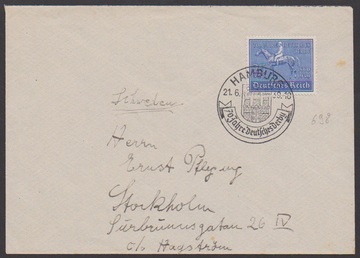 HAMBURG
21.6.
70 Jahre deutsches Derby
Deutsches Reich
Schweden
698
Herrn
Ernst Pleging
Stockholm
Surbrunnsgatan 26 IV
c/o Hagström